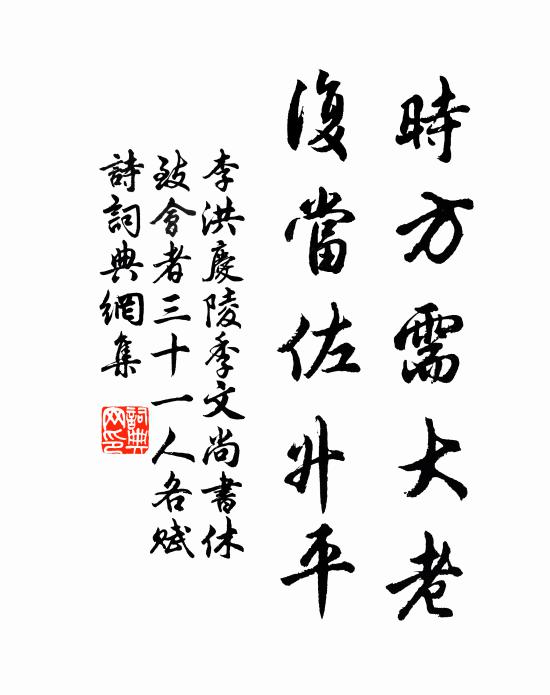 時方需大老
復當佐升平
李洪慶陵季文尚書休
致會者三十一人各賦
詩詞典網集
詞典
网印